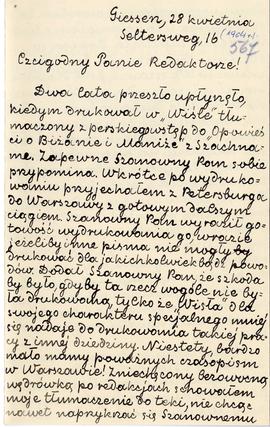 Giessen, 28 kwietnia
Seltersweg, 16 (1904 r.)
567
Czcigodny Panie Redaktorze!
Dwa lata przeszło upłynęło,
kiedym drukował w „Wiśle" tłu-
maczony z perskiego wstęp do „Opowieś
ci o Biżanie i Maniże" z Szachna-
me. Zapewne Szanowny Pan sobie
przypomina. Wkrótce po wydruko-
waniu przyjechałem z Petersburga
do Warszawy z gotowym dalszym
ciągiem. Szanowny Pan wyraził go-
towość wydrukowania go, w razie
jeżeliby inne pisma nie mogły by
drukować dla jakichkolwiekbądź powo-
dów. Dodał Szanowny Pan, że szkoda
by było, gdyby ta rzecz wogóle nie by-
ła drukowana, tylko że Wisła dla
swojego charakteru specjalnego mniej
się nadaje do drukowania takiej pra-
cy z innej dziedziny. Niestety, bardzo
mało mamy poważnych czasopism
w Warszawie! Zniechęcony bezowocną
wędrówką po redakcjach schowałem
moje tłumaczenie do teki, nie chcąc
nawet naprzykrzać się Szanownemu